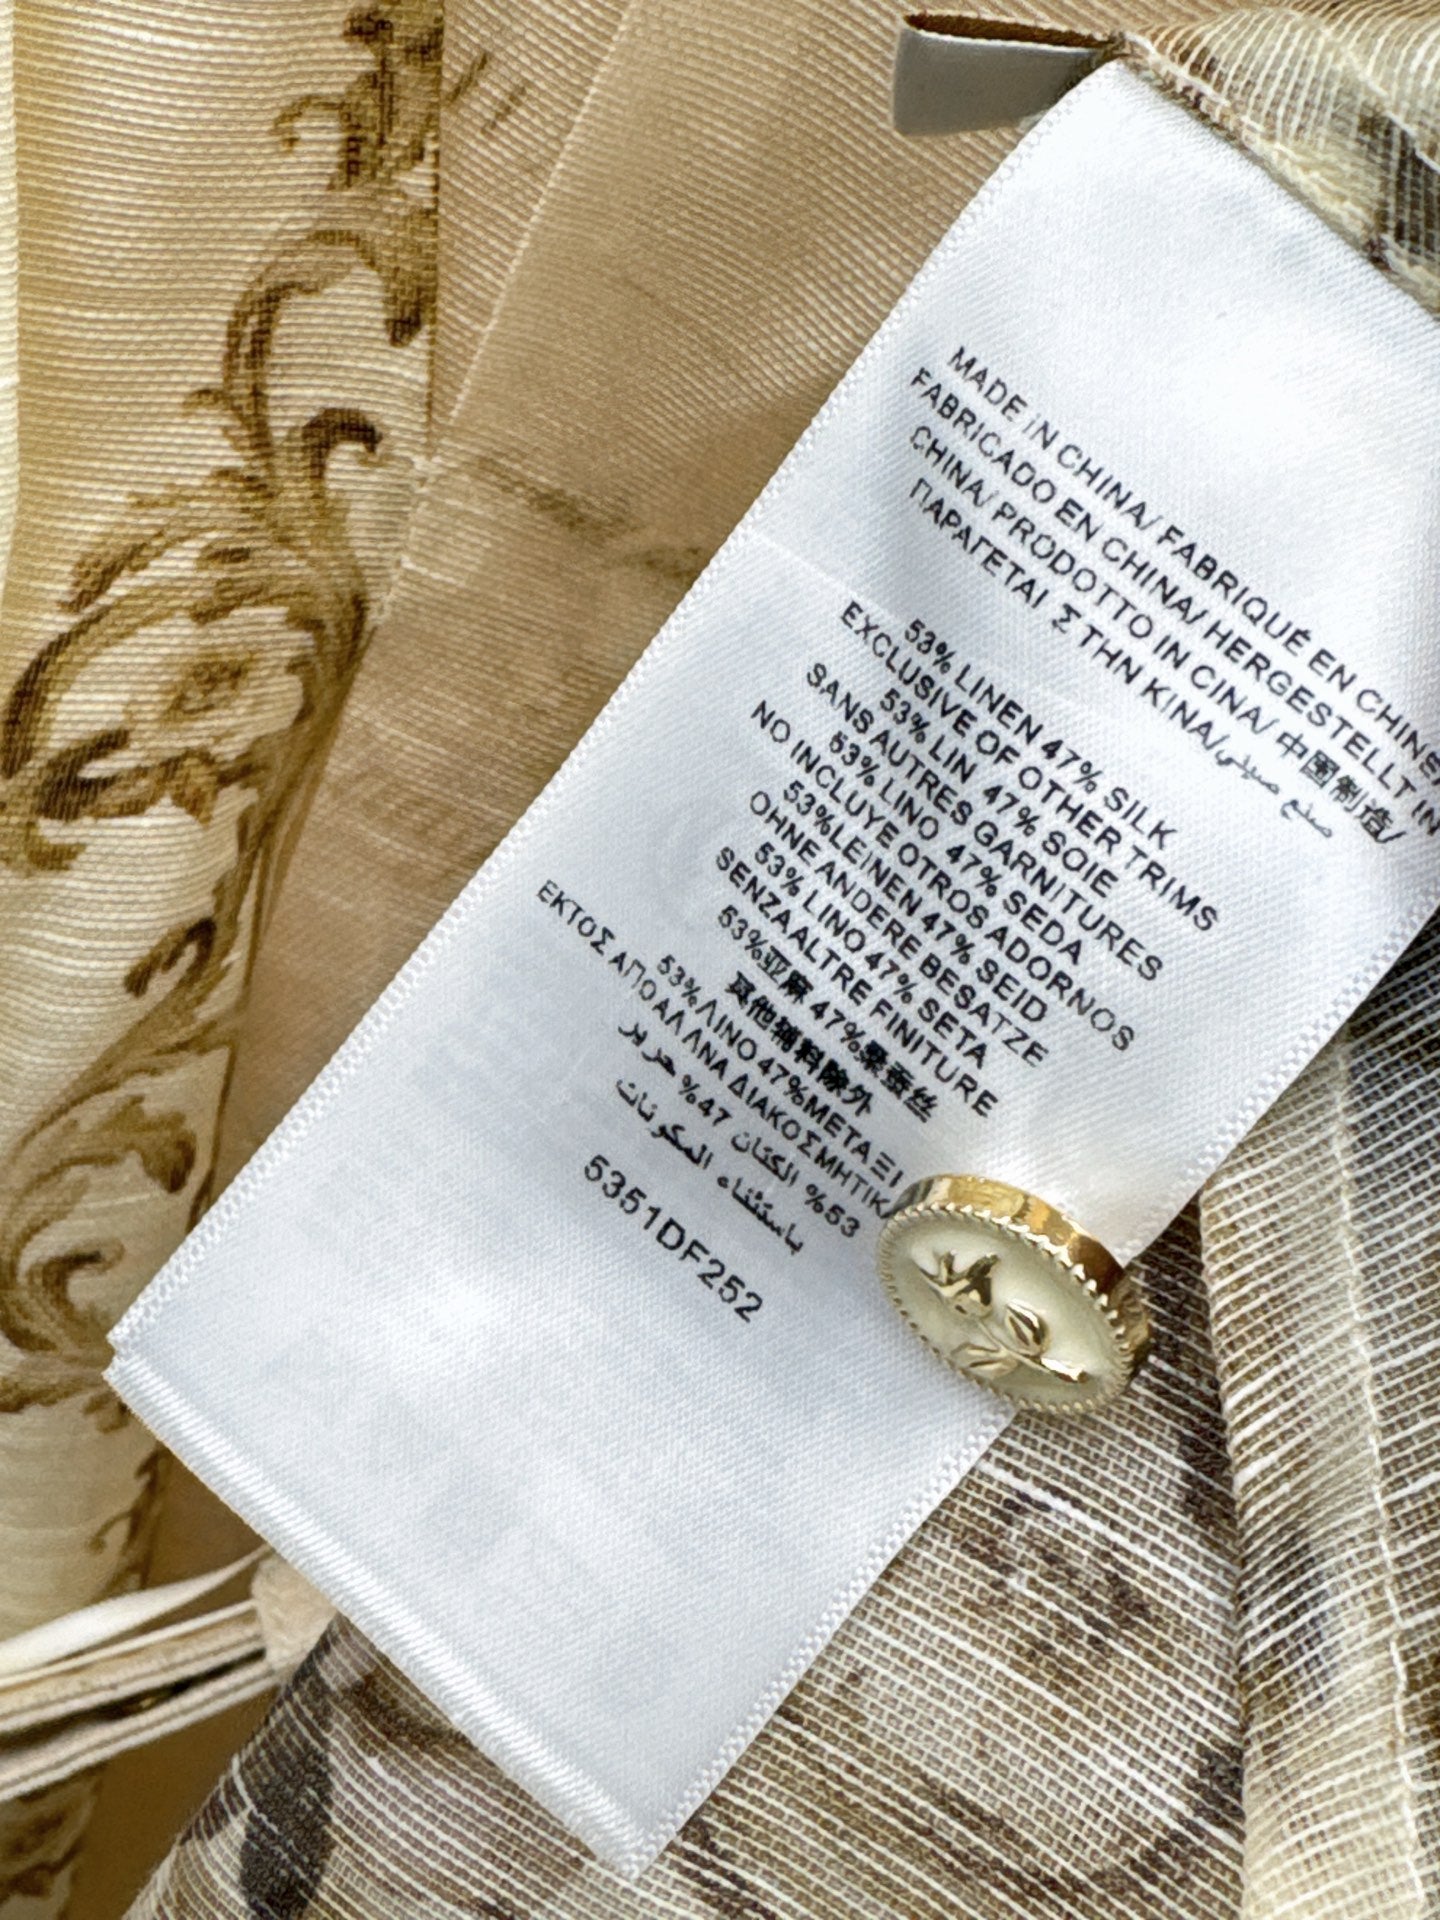 MADE IN CHINA/ FABRIQUÉ EN CHINE/
FABRICADO EN CHINA/ HERGESTELLT IN
CHINA/ PRODOTTO IN CINA/ 中国制造/
ΠΑΡΑΓΕΤΑΙ Σ ΤΗΝ ΚΙΝΑ/صنع صيني
53% LINEN 47% SILK
EXCLUSIVE OF OTHER TRIMS
53% LIN 47% SOIE
SANS AUTRES GARNITURES
53% LINO 47% SEDA
NO INCLUYE OTROS ADORNOS
53%LEINEN 47% SEID
OHNE ANDERE BESATZE
53% LINO 47% SETA
SENZA ALTRE FINITURE
53%亚麻 47%桑蚕丝
其他辅料除外
53%ΛΙΝΟ 47%ΜΕΤΑΞΙ
ΕΚΤΟΣ ΑΠΟ ΑΛΛΝΑ
53% الكتان 47% حرير
باستثناء المكونات
5351DF252